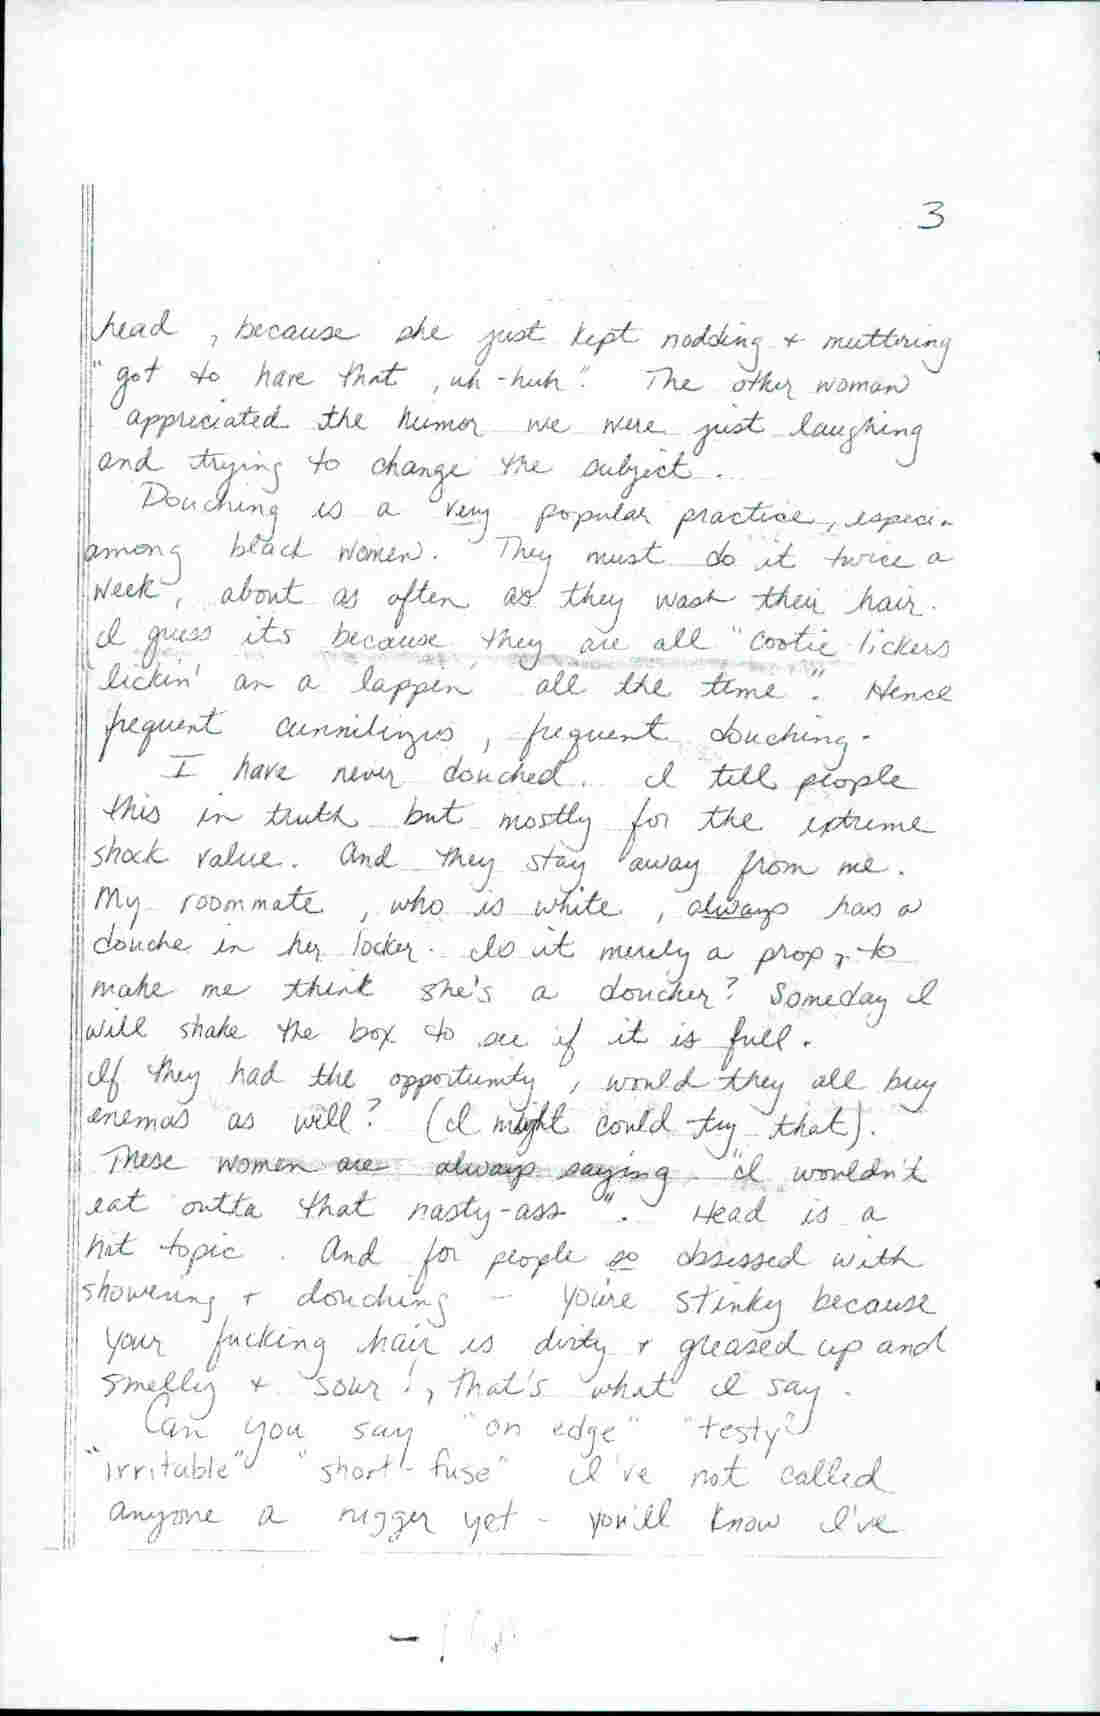 3
head, because she just kept nodding + muttering
"got to have that, uh-huh". The other woman
appreciated the humor we were just laughing
and trying to change the subject.
Douching is a very popular practice, especi-
among black women. They must do it twice a
week, about as often as they wash their hair.
I guess its because they are all "cootie-lickers
lickin' an a lappen all the time". Hence
frequent cunnilingus, frequent douching.
I have never douched. I tell people
this in truth but mostly for the extreme
shock value. And they stay away from me.
My roommate, who is white, always has a
douche in her locker. Is it merely a prop, to
make me think she's a doucher? Someday I
will shake the box to see if it is full.
If they had the opportunity, would they all buy
enemas as well? (I might could try that).
These women are always saying "I wouldn't
eat outta that nasty-ass". Head is a
hit topic. And for people so obsessed with
showering + douching - You're stinky because
your fucking hair is dirty + greased up and
smelly + sour!, that's what I say.
Can you say "on edge" "testy"?
"irritable" "short-fuse" I've not called
anyone a nigger yet - you'll know I've